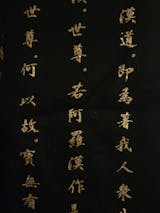 漢道。即為著我人衆
世尊。若阿羅漢作是
世尊。何以故。實無有